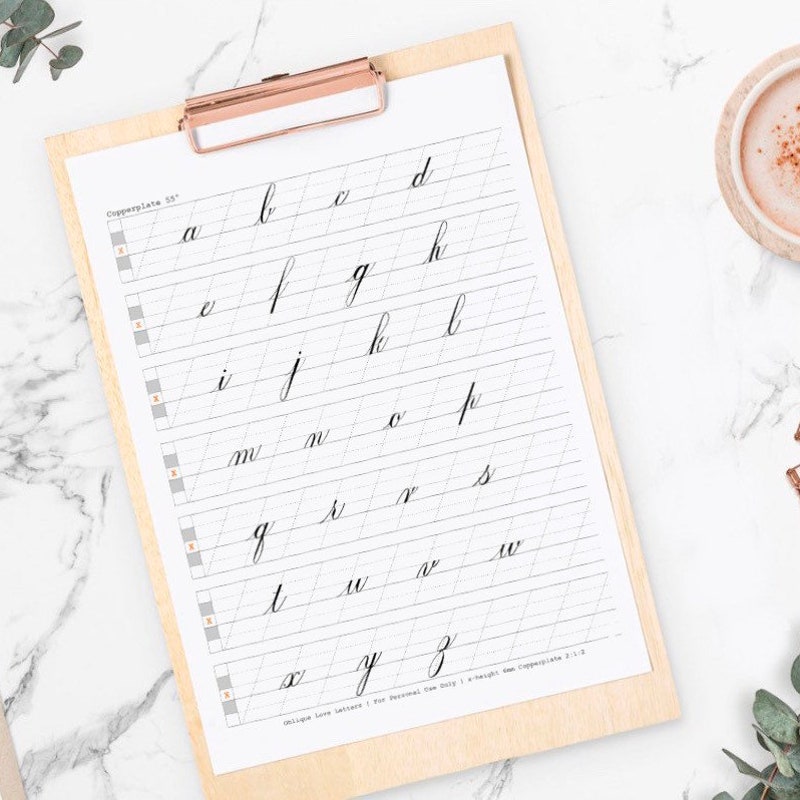 Copperplate 55°
x a b c d
x e f g h
x i j k l
x m n o p
x q r r s
x t u v w
x x y z
Oblique Love Letters | For Personal Use Only | x-height 6mm Copperplate 2:1:2